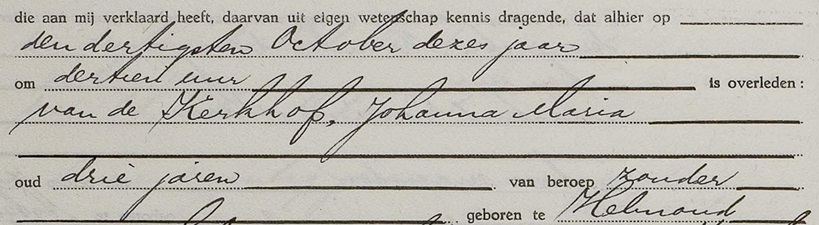 die aan mij verklaard heeft, daarvan uit eigen wetenschap kennis dragende, dat alhier op
den dertigsten October dezes jaar
om dertien uur is overleden:
van de Kerkhof, Johanna Maria
oud drie jaren van beroep zonder
geboren te Helmond